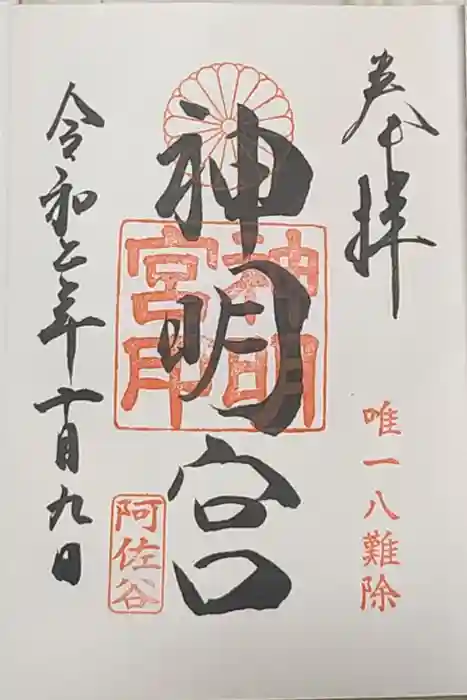 奉拝
唯一八難除
神明宮
神明宮印
阿佐谷
令和二年十月九日